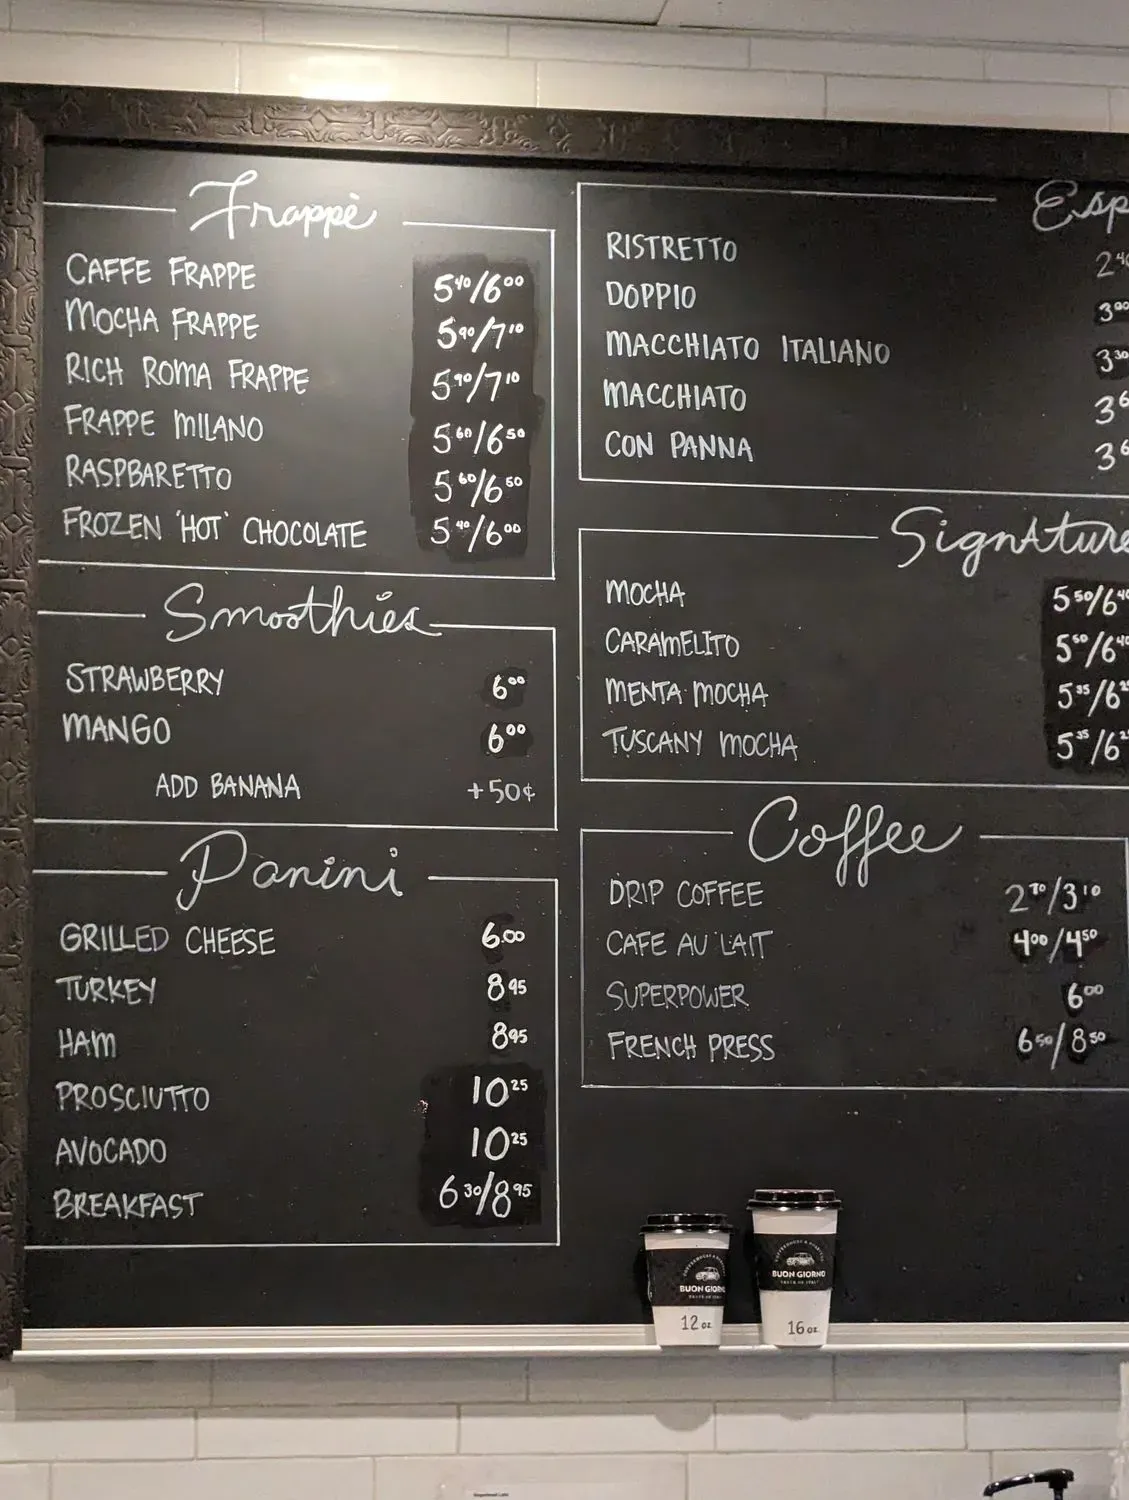 Frappè
CAFFE FRAPPE 5⁴⁰/6⁰⁰
MOCHA FRAPPE 5⁹⁰/7¹⁰
RICH ROMA FRAPPE 5⁹⁰/7¹⁰
FRAPPE MILANO 5⁶⁰/6⁵⁰
RASPBARETTO 5⁶⁰/6⁵⁰
FROZEN 'HOT' CHOCOLATE 5⁴⁰/6⁰⁰
Smoothies
STRAWBERRY 6⁰⁰
MANGO 6⁰⁰
ADD BANANA +50¢
Panini
GRILLED CHEESE 6.00
TURKEY 8⁹⁵
HAM 8⁹⁵
PROSCIUTTO 10²⁵
AVOCADO 10²⁵
BREAKFAST 6³⁰/8⁹⁵
Esp
RISTRETTO 2⁴⁰
DOPPIO 3⁰⁰
MACCHIATO ITALIANO 3³⁰
MACCHIATO 3⁶
CON PANNA 3⁶
Signature
MOCHA 5⁵⁰/6⁴⁰
CARAMELITO 5⁵⁰/6⁴⁰
MENTA MOCHA 5³⁵/6²
TUSCANY MOCHA 5³⁵/6²
Coffee
DRIP COFFEE 2⁷⁰/3¹⁰
CAFE AU LAIT 4⁰⁰/4⁵⁰
SUPERPOWER 6⁰⁰
FRENCH PRESS 6⁵⁰/8⁵⁰
BUON GIORNO
TASTE OF ITALY
12 oz
BUON GIORNO
TASTE OF ITALY
16 oz